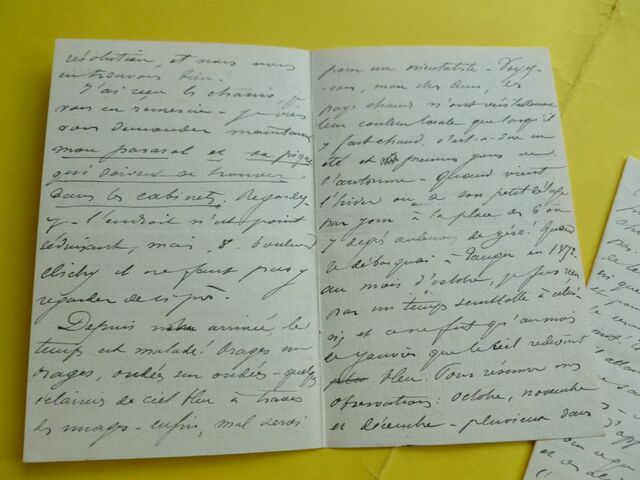 résolution, et nous nous
en trouvons bien!
J'ai reçu les châssis, je
vous en remercie - je vais
vous demander maintenant
mon parasol et sa pique
qui doivent se trouver
dans les cabinets. Regardez
y - l'endroit n'est point
séduisant, mais, 8. boulevard
clichy il ne faut pas y
regarder de si près.
Depuis notre arrivée le
temps est malade! Orages sur
orages, ondées sur ondées - quelques
éclaircies de ciel bleu à travers
les nuages - enfin, mal servi
pour un orientaliste - Voyez-
vous, mon cher ami, les
pays chauds n'ont véritablement
leur couleur locale que lorsqu'il
y fait chaud, c'est-à-dire en
été et premiers jours de
l'automne - quand vient
l'hiver on a son petit
par jour à la place des
degrés au dessus de zéro. Quand
je débarquai à Tanger en 1872
au mois d'octobre, je fus reçu
par un temps semblable à celui-
ci, et ce ne fut qu'au mois
de Janvier que le ciel redevint
bleu. Pour résumer mes
observations: Octobre, novembre
et décembre - pluvieux dans